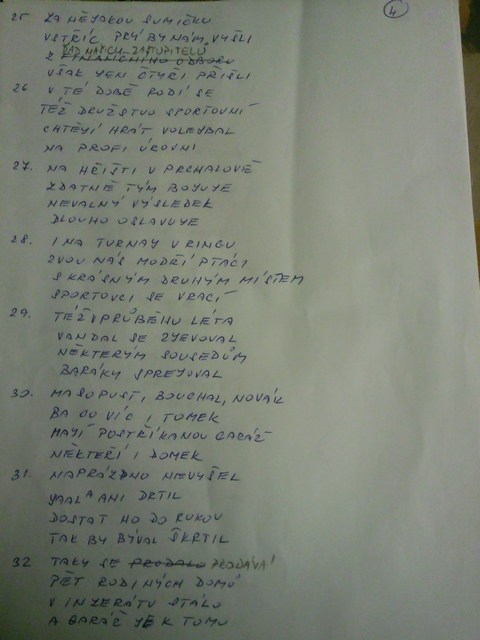 4
25 ZA NĚJAKOU SUMIČKU
VSTŘÍC PRÝ BY NÁM VYŠLI
ŘAD NAŠICH ZASTUPITELŮ
Z FINANČNÍHO ODBORU
VŠAK JEN ČTYŘI PŘIŠLI
26 V TÉ DOBĚ RODÍ SE
TÉŽ DRUŽSTVO SPORTOVNÍ
CHTĚJÍ HRÁT VOLEJBAL
NA PROFI ÚROVNI
27. NA HŘIŠTI V PRCHALOVĚ
ZDATNĚ TÝM BOJUJE
NEVALNÝ VÝSLEDEK
DLOUHO OSLAVUJE
28. I NA TURNAJ V RINGU
ZVOU NÁS MODŘÍ PTÁCI
S KRÁSNÝM DRUHÝM MÍSTEM
SPORTOVCI SE VRACÍ
29. TÉŽ V PRŮBĚHU LÉTA
VANDAL SE ZJEVOVAL
NĚKTERÝM SOUSEDŮM
BARÁKY SPREJOVAL
30. MASOPUST, BOUCHAL, NOVÁK
BA CO VÍC I TOMEK
MAJÍ POSTŘÍKANOU GARÁŽ
NĚKTEŘÍ I DOMEK
31. NAPRÁZDNO NEVYŠEL
JAALA ANI DRTIL
DOSTAT HO DO RUKOU
TAK BY BÝVAL ŠKRTIL
32 TAKY SE PRODALO PRODÁVÁ
PĚT RODINÝCH DOMŮ
V INZERÁTU STÁLO
A GARÁŽ JE K TOMU